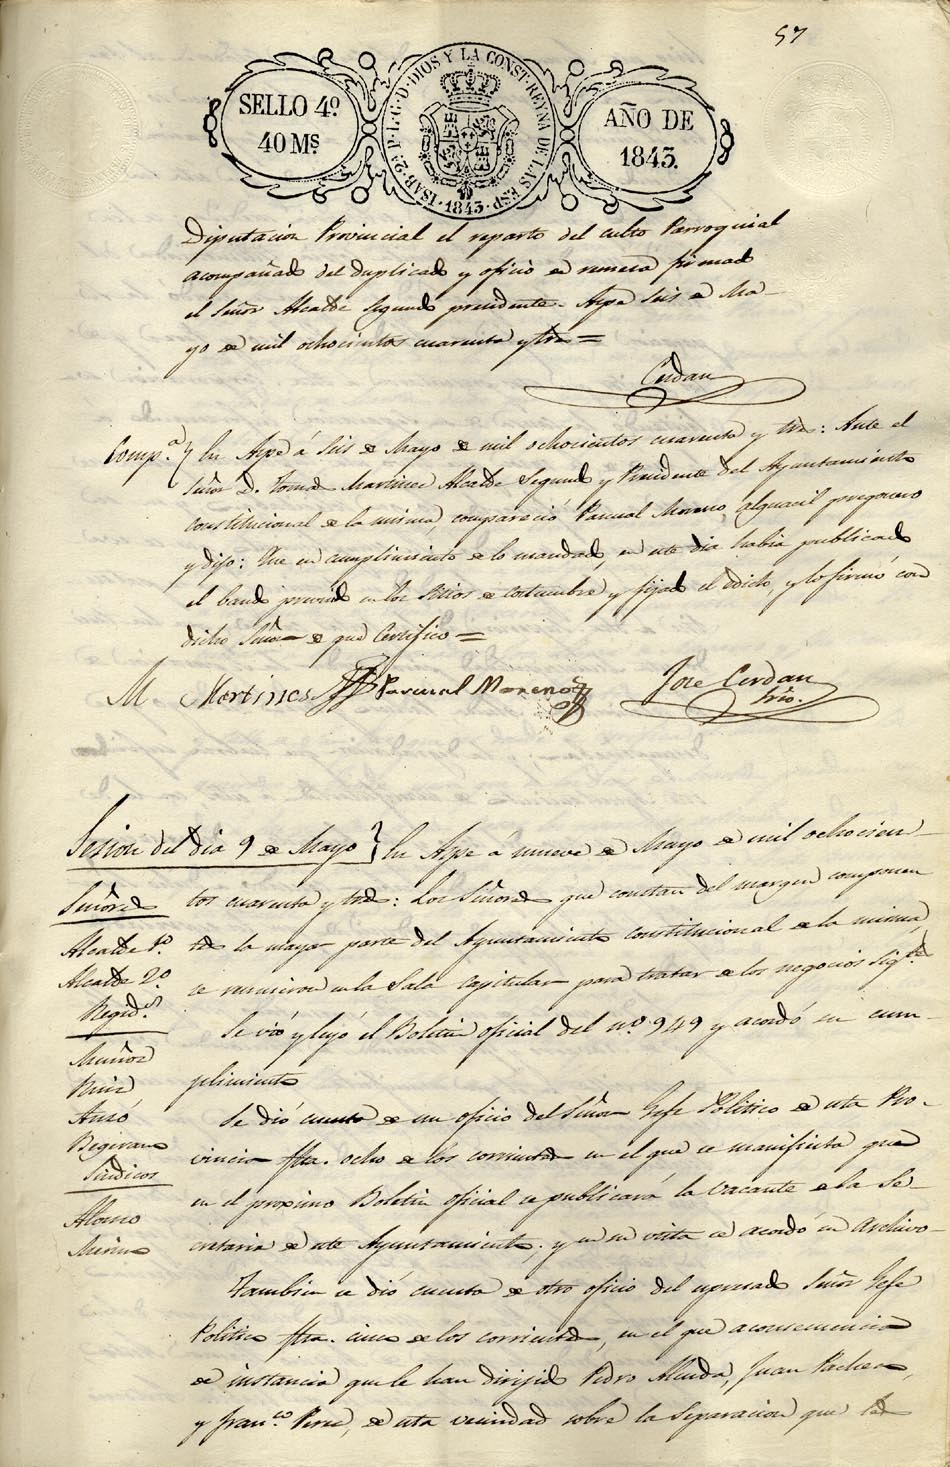 57
SELLO 4º
40 Mˢ
ISAB. 2ª P. L. G. D. DIOS Y LA CONST. REYNA DE LAS ESP.
1843
AÑO DE
1843.
Diputacion Provincial el reparto del culto Parroquial
acompañado del duplicado y oficio de remesa firmado
el Señor Alcalde segundo presidente. Aspe seis de Ma-
yo de mil ochocientos cuarenta y tres =
Cerdan
Comp.ª } En Aspe á seis de Mayo de mil ochocientos cuarenta y tres: Ante el
Señor D. Tomas Martinez Alcalde Segundo y Presidente del Ayuntamiento
constitucional de la misma, compareció Pascual Moreno, alguacil pregonero
y dijo: Que en cumplimiento de lo mandado, en este dia habia publicado
el bando prevenido en los sitios de costumbre y fijado el edicto, y lo firmó con
dicho Señor de que Certifico =
M Martines Pascual Moreno Jose Cerdan
Srio.
Sesion del dia 9 de Mayo } En Aspe á nueve de Mayo de mil ochocien-
Señores
tos cuarenta y tres: Los Señores que constan del margen componen
Alcalde 1º
tes la mayor parte del Ayuntamiento constitucional de la misma,
Alcalde 2º
se reunieron en la Sala Capitular para tratar de los negocios sigtes
Regid.s
Se vió y leyó el Boletin oficial del nº 949 y acordó su cum-
Muñoz
plimiento
Ruiz
Se dió cuenta de un oficio del Señor Gefe Politico de esta Pro-
Botella
vincia fha. ocho de los corrientes en el que se manifiesta que
Sindicos
en el proximo Boletin oficial se publicará la vacante de la Se-
Alonso
cretaria de este Ayuntamiento, y en su vista se acordó su archivo-
Tambien se dió cuenta de otro oficio del espresado Señor Gefe
Politico fha. cinco de los corrientes, en el que a consecuencia
de instancia que le han dirijido Pedro Almela, Juan Pacheco,
y Fran.co Perez, de esta vecindad sobre la separacion que les